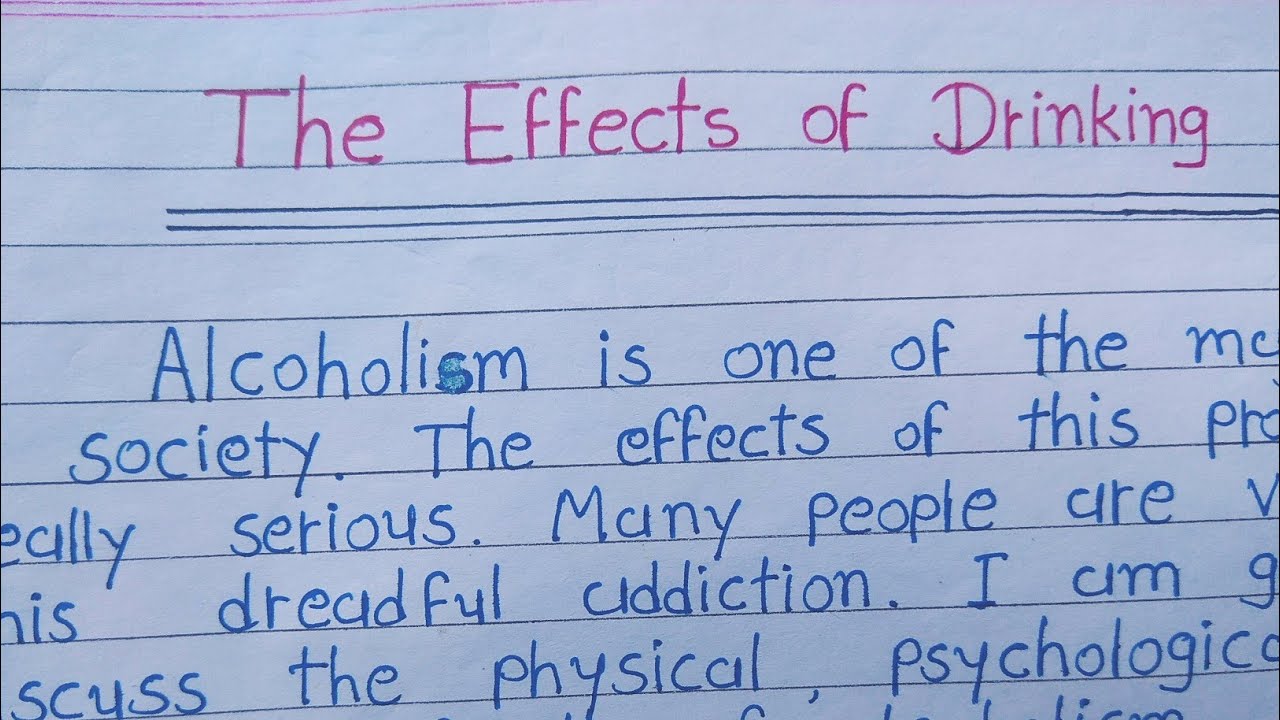 The Effects of Drinking
Alcoholism is one of the
society. The effects of this
serious. Many people are
dreadful addiction. I am
the physical, psychological